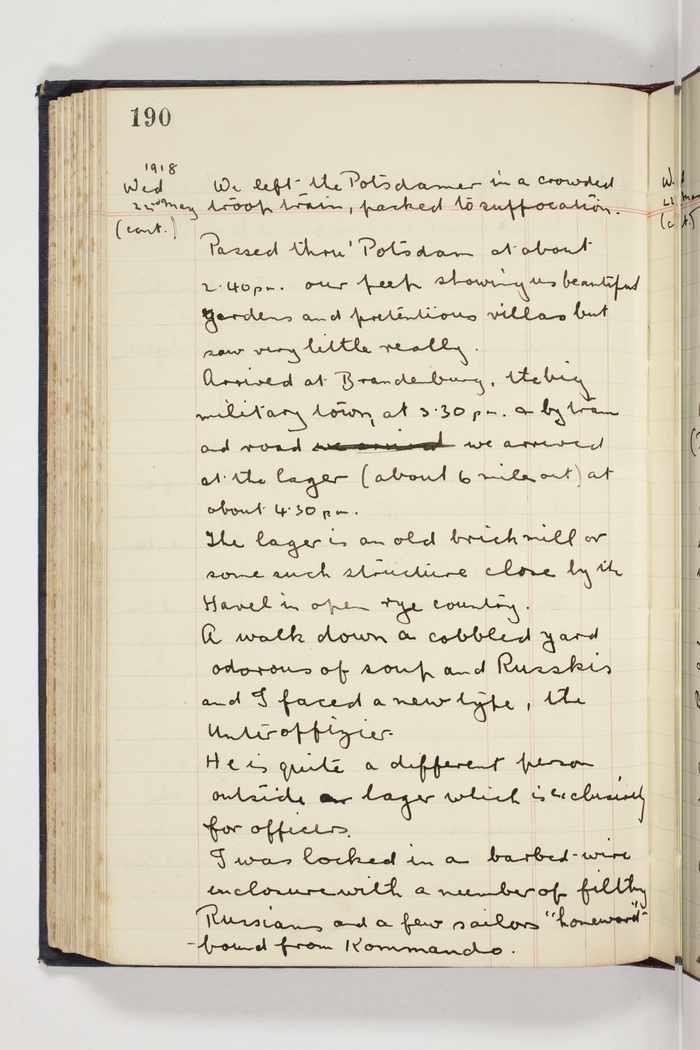 190
1918
Wed
22nd May
(cont.)
We left the Potsdamer in a crowded
troop train, packed to suffocation.
Passed thru' Potsdam at about
2.40 pm. our peep showing us beautiful
gardens and pretentious villas but
saw very little really.
Arrived at Brandenburg, the big
military town, at 3.30 pm. & by tram
and road we arrived we arrived
at the lager (about 6 miles out) at
about 4.30 pm.
The lager is an old brick mill or
some such structure close by the
Havel in open rye country.
A walk down a cobbled yard
odorous of soup and Russkis
and I faced a new type, the
Unteroffizier.
He is quite a different person
outside a lager which is exclusively
for officers.
I was locked in a barbed-wire
enclosure with a number of filthy
Russians and a few sailors "homeward"
-bound from Kommando.